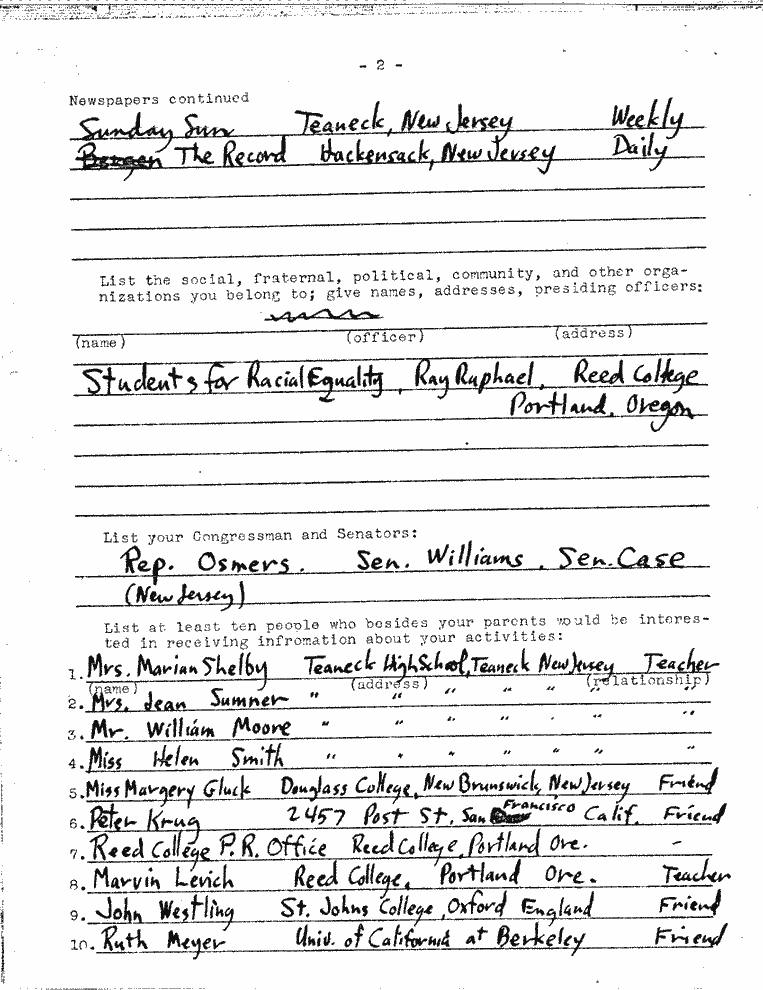 - 2 -
Newspapers continued
Sunday Sun Teaneck, New Jersey Weekly
Bergen The Record Hackensack, New Jersey Daily
List the social, fraternal, political, community, and other orga-
nizations you belong to; give names, addresses, presiding officers:
(name) (officer) (address)
Students for Racial Equality, Ray Raphael, Reed College
Portland, Oregon
List your Congressman and Senators:
Rep. Osmers. Sen. Williams. Sen. Case
(New Jersey)
List at least ten people who besides your parents would be interes-
ted in receiving infromation about your activities:
1. Mrs. Marian Shelby Teaneck High School, Teaneck New Jersey Teacher
(name) (address) (relationship)
2. Mrs. Jean Sumner " " " " " "
3. Mr. William Moore " " " " " "
4. Miss Helen Smith " " " " " " "
5. Miss Margery Gluck Douglass College, New Brunswick, New Jersey Friend
6. Peter Krug 2457 Post St, San Francisco Calif. Friend
7. Reed College P.R. Office Reed College, Portland Ore. -
8. Marvin Levich Reed College, Portland Ore. Teacher
9. John Westling St. Johns College, Oxford England Friend
10. Ruth Meyer Univ. of California at Berkeley Friend